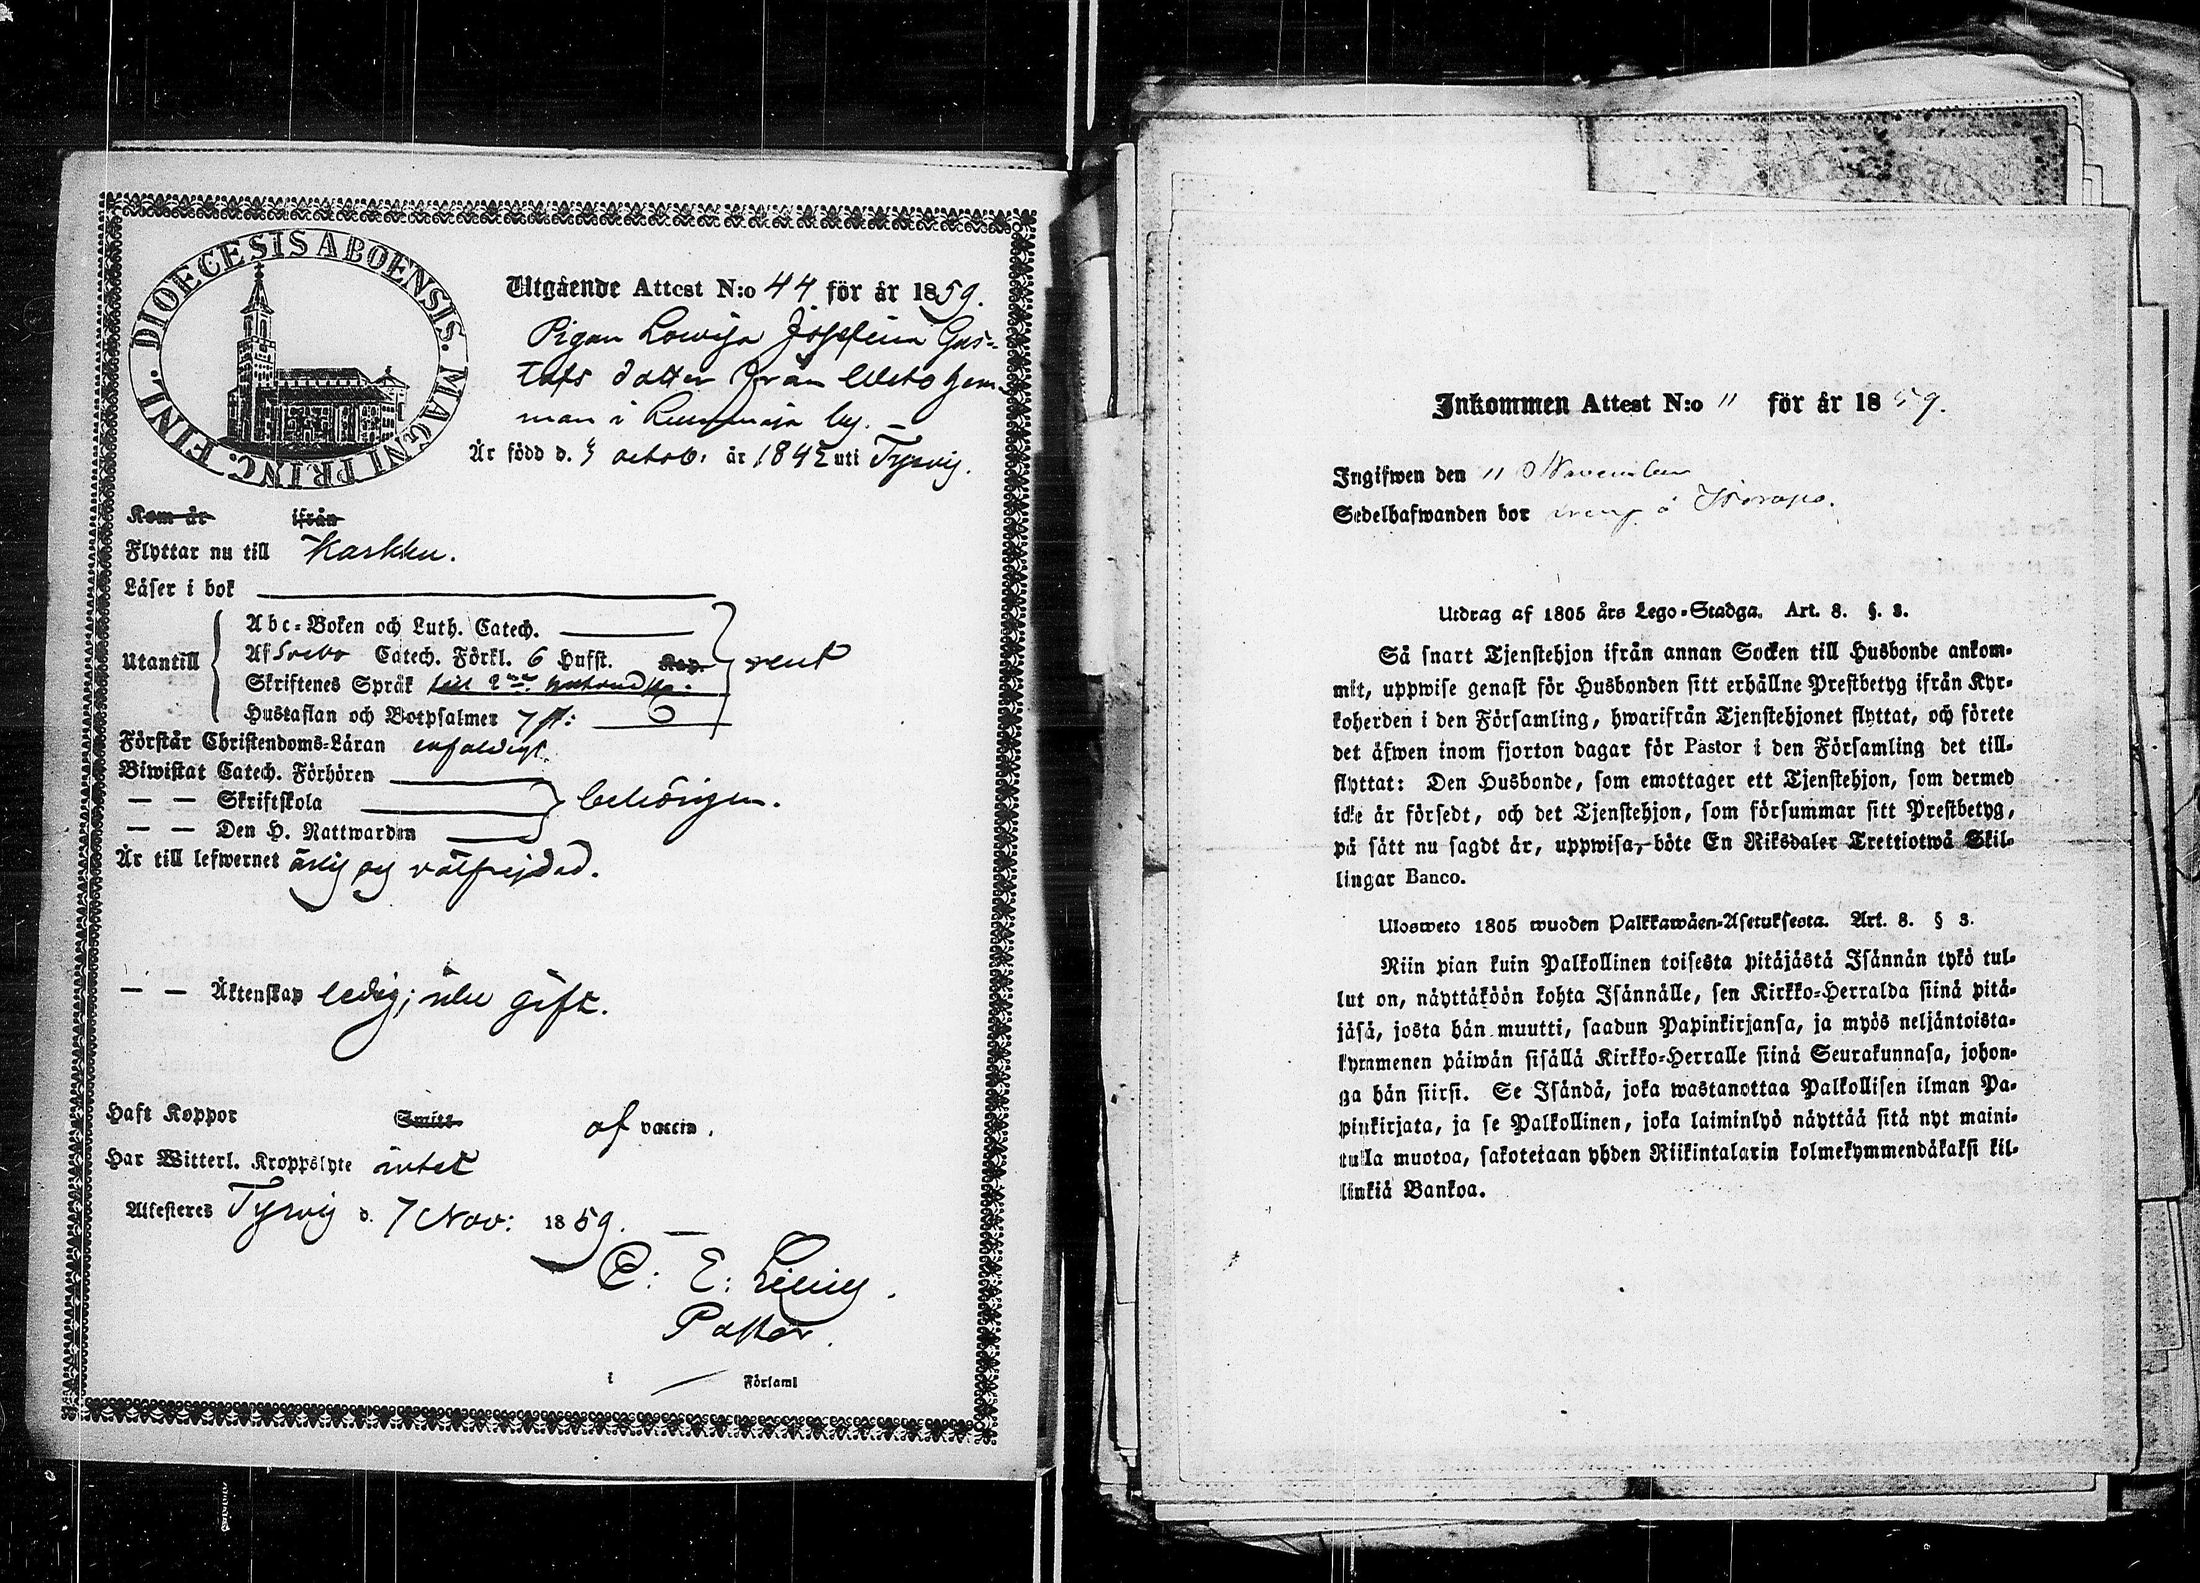 DIOECESIS ABOENSIS. MAGNI PRINC. FINL.
Utgående Attest N:o 44 för år 1859.
Pigan Lowisa Josefina Gus-
tafs dotter från
man i by.
Är född d. octob. år 1842 uti Tyrvis.
Kom år ifrån
Flyttar nu till Karkku.
Läser i bok
Utantill
Abc-Boken och Luth. Catech.
Af Svebo Catech. Förkl. 6 Hufst. Kap. rent
Skriftenes Språk till 2
Hustaflan och Botpsalmer 7 st:
Förstår Christendoms-Läran enfaldigt
Biwistat Catech. Förhören
— — Skriftskola behörigen.
— — Den H. Nattwarden
Är till lefwernet ärlig och välfrejdad.
— — Äktenskap ledig; icke gift.
Haft Koppor Smitt af vaccin.
Har Witterl. Kroppslyte intet
Attesteres Tyrvis d. 7 Nov: 1859.
C: E:
Pastor.
i Förfaml
Inkommen Attest N:o 11 för år 1859.
Ingifwen den 11 November
Sedelhafwanden bor
Utdrag af 1805 års Lego-Stadga. Art. 8. §. 3.
Så snart Tjenstehjon ifrån annan Socken till Husbonde ankom-
mit, uppwise genast för Husbonden sitt erhållne Prestbetyg ifrån Kyr-
koherden i den Församling, hwarifrån Tjenstehjonet flyttat, och förete
det äfwen inom fjorton dagar för Pastor i den Församling det till-
flyttat: Den Husbonde, som emottager ett Tjenstehjon, som dermed
icke är försedt, och det Tjenstehjon, som försummar sitt Prestbetyg,
på sätt nu sagdt är, uppwisa, böte En Riksdaler Trettiotwå Skil-
lingar Banco.
Ulosweto 1805 wuoden Palkkawäen-Asetuksesta. Art. 8. § 3.
Niin pian kuin Palkollinen toisesta pitäjästä Isännän tykö tul-
lut on, näyttäköön kohta Isännälle, sen Kirkko-Herralda siinä pitä-
jäsä, josta hän muutti, saadun Papinkirjansa, ja myös neljäntoista-
kymmenen päiwän sisällä Kirkko-Herralle siinä Seurakunnasa, johon-
ga hän siirsi. Se Isändä, joka wastanottaa Palkollisen ilman Pa-
pinkirjata, ja se Palkollinen, joka laiminlyö näyttää sitä nyt maini-
tulla muotoa, sakotetaan yhden Riikintalarin kolmekymmendäkaksi kil-
linkiä Bankoa.